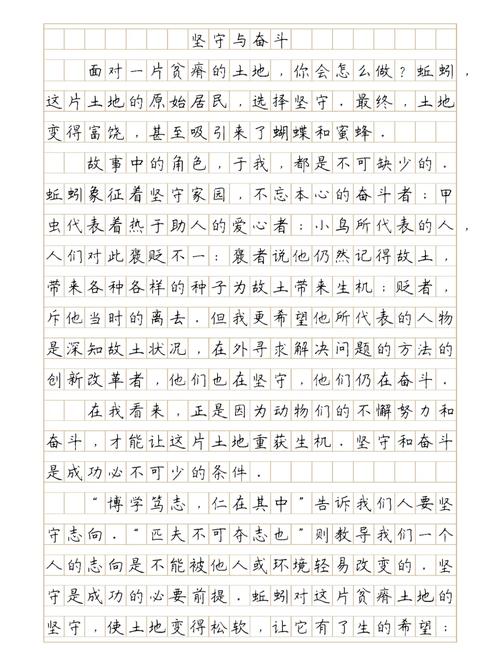 坚守与奋斗
面对一片贫瘠的土地，你会怎么做？蚯蚓，
这片土地的原始居民，选择坚守．最终，土地
变得富饶，甚至吸引来了蝴蝶和蜜蜂．
故事中的角色，于我，都是不可缺少的．
蚯蚓象征着坚守家园，不忘本心的奋斗者；甲
虫代表着热于助人的爱心者；小鸟所代表的人，
人们对此褒贬不一：褒者说他仍然记得故土，
带来各种各样的种子为故土带来生机；贬者，
斥他当时的离去．但我更希望他所代表的人物
是深知故土状况，在外寻求解决问题的方法的
创新改革者，他们也在坚守，他们仍在奋斗．
在我看来，正是因为动物们的不懈努力和
奋斗，才能让这片土地重获生机．坚守和奋斗
是成功必不可少的条件．
“博学笃志，仁在其中”告诉我们人要坚
守志向．“匹夫不可夺志也”则教导我们一个
人的志向是不能被他人或环境轻易改变的．坚
守是成功的必要前提．蚯蚓对这片贫瘠土地的
坚守，使土地变得松软，让它有了生的希望；